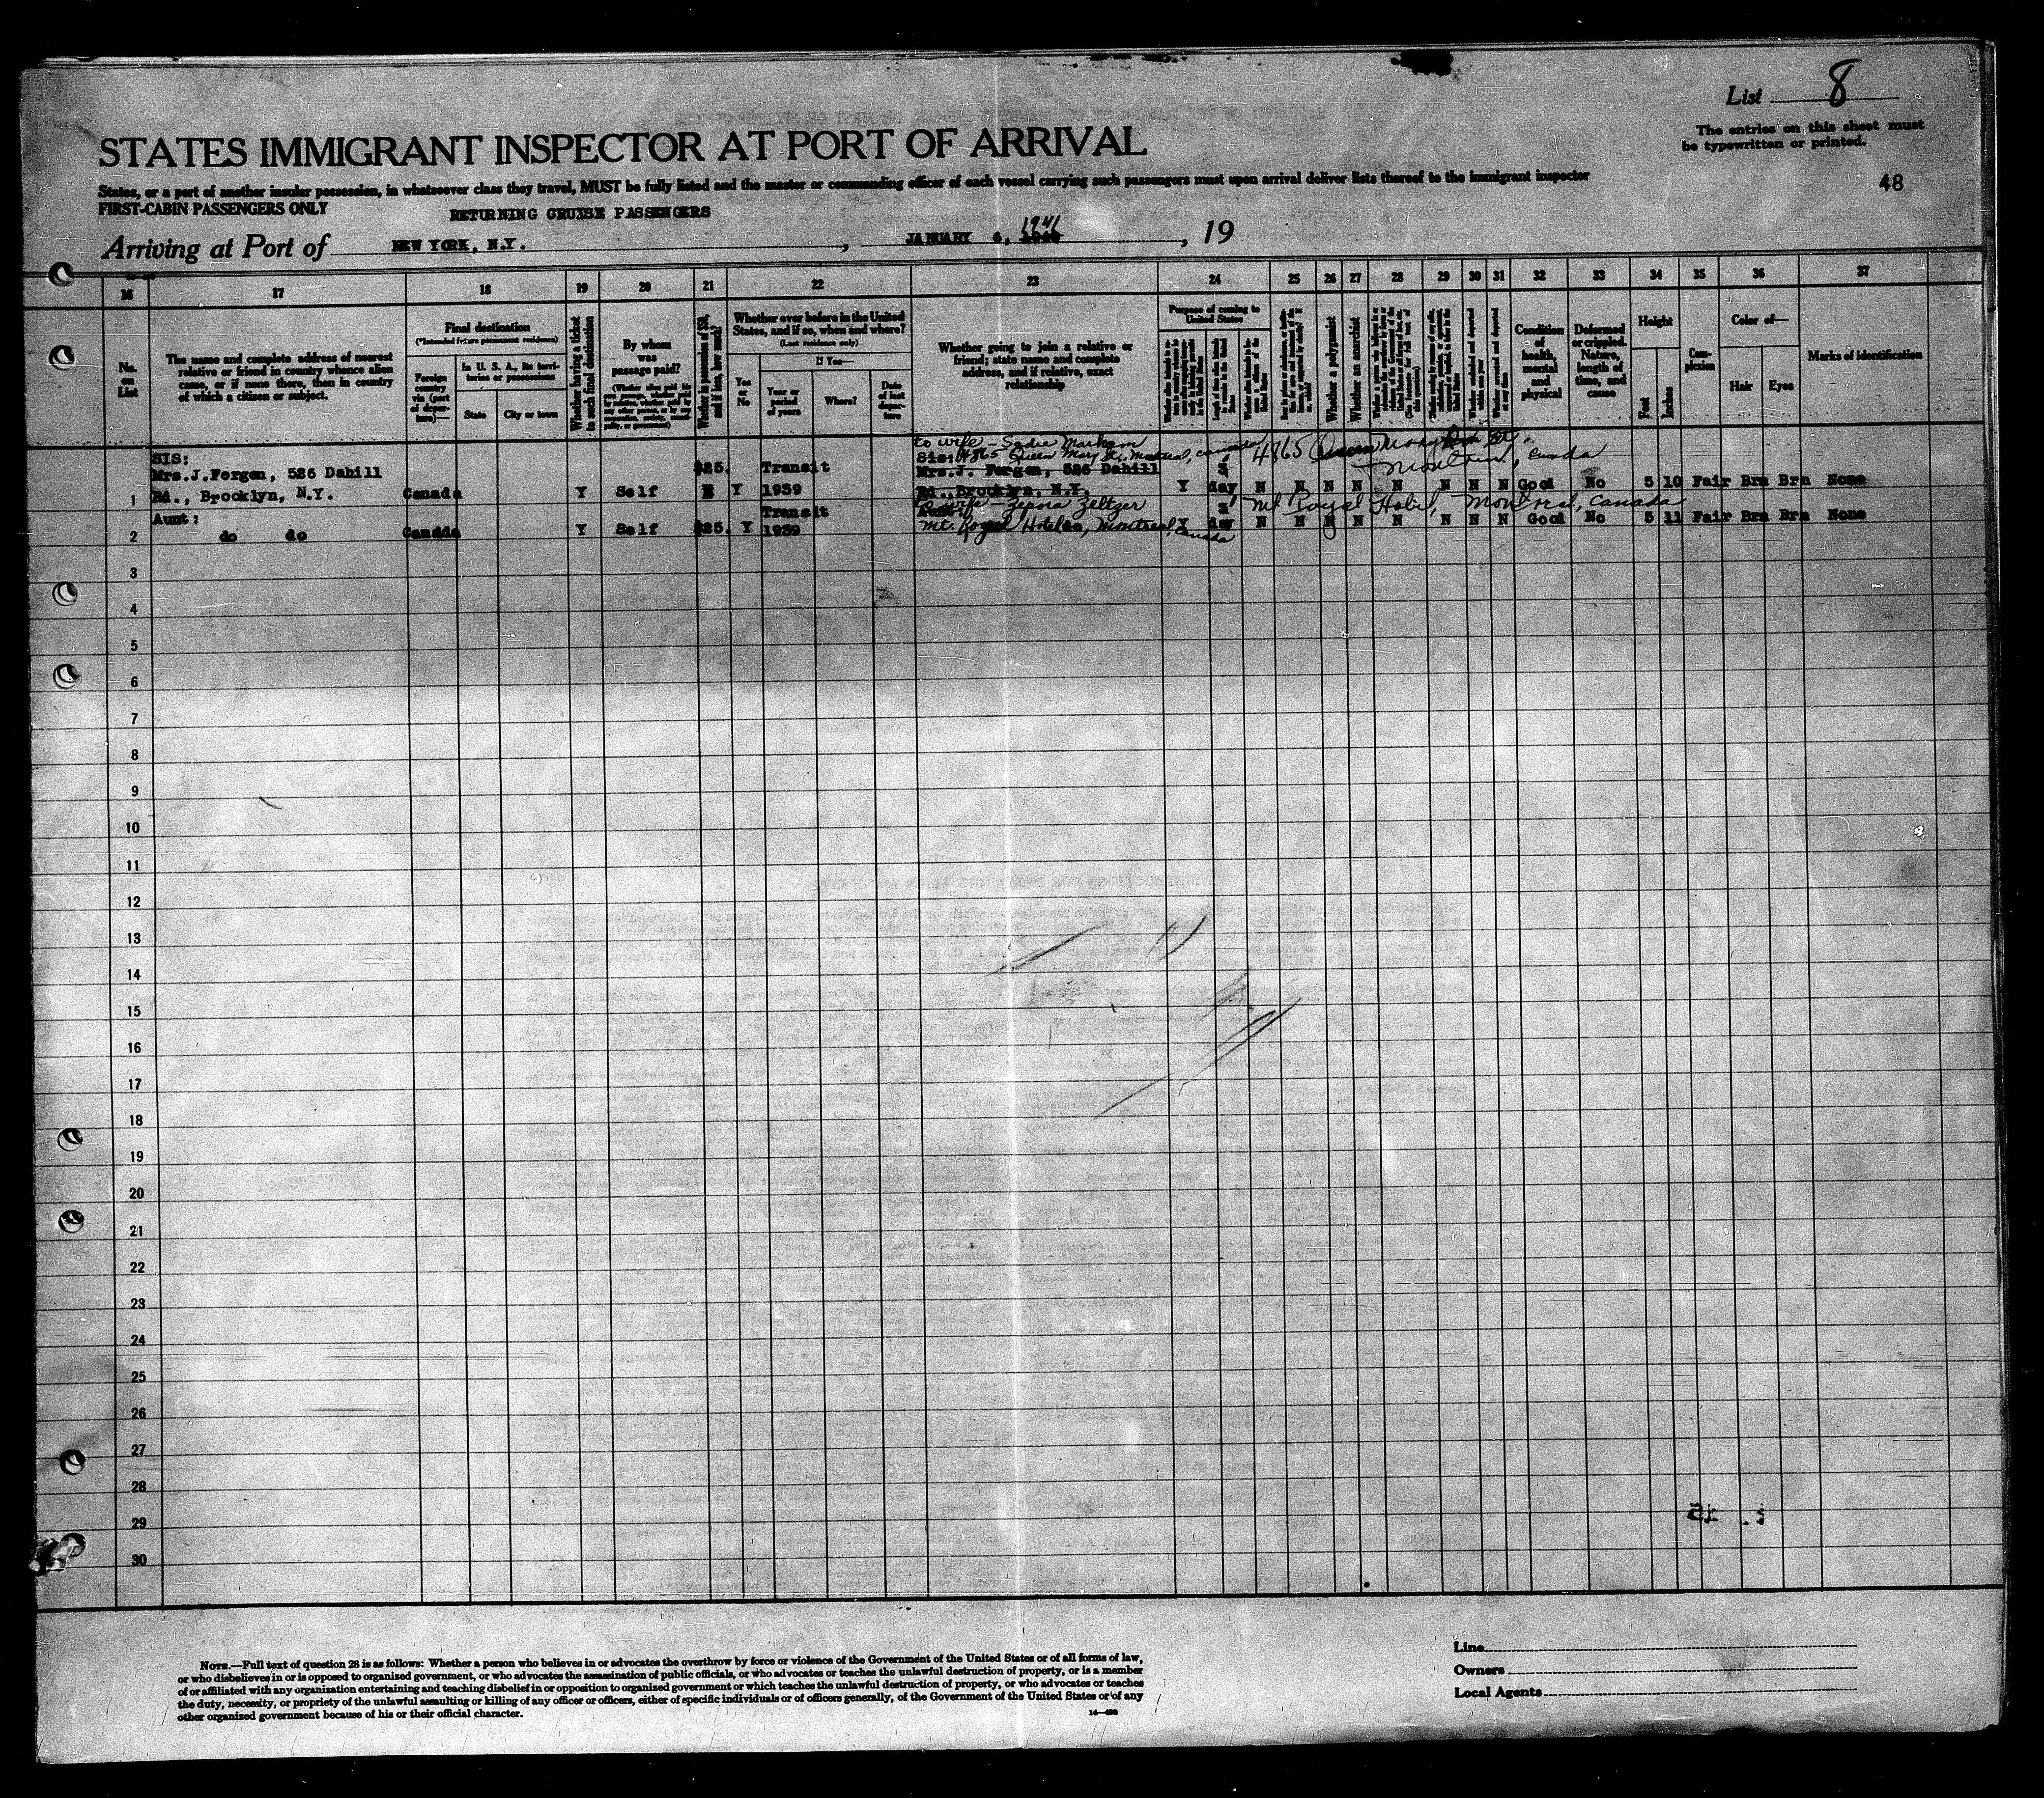 List 8
The entries on this sheet must
be typewritten or printed.
STATES IMMIGRANT INSPECTOR AT PORT OF ARRIVAL
States, or a part of another insular possession, in whatsoever class they travel, MUST be fully listed and the master or commanding officer of each vessel carrying such passengers must upon arrival deliver lists thereof to the immigrant inspector
48
FIRST-CABIN PASSENGERS ONLY
RETURNING CRUISE PASSENGERS
Arriving at Port of NEW YORK, N.Y. , JANUARY 6, 1941 , 19
16 17 18 19 20 21 22 23 24 25 26 27 28 29 30 31 32 33 34 35 36 37
No. on List
The name and complete address of nearest
relative or friend in country whence alien
came, or if none there, then in country
of which a citizen or subject.
Final destination
(*Intended future permanent residence)
Foreign country via (port of departure)—
In U. S. A., its territories or possessions
State
City or town
Whether having a ticket to such final destination
By whom was passage paid?
Whether in possession of $50, and if less, how much?
Whether ever before in the United
States, and if so, when and where?
(Last residence only)
Yes or No
If Yes—
Year or period of years
Where?
Date of last departure
Whether going to join a relative or
friend; state name and complete
address, and if relative, exact
relationship
Purpose of coming to United States
Whether a polygamist
Whether an anarchist
Condition of health, mental and physical
Deformed or crippled. Nature, length of time, and cause
Height
Feet
Inches
Complexion
Color of—
Hair
Eyes
Marks of identification
to wife – Sadie Markham
SIS: Sis: 4865 Queen Mary St., Montreal, Canada 4865 Queen Mary St.
Mrs.J.Fergen, 526 Dahill $25. Transit Mrs.J. Fergen, 526 Dahill Montreal, Canada
1 Rd., Brooklyn, N.Y. Canada Y Self Y 1939 Rd., Brooklyn, N.Y. Y day N N N N N N N N Good No 5 10 Fair Brn Brn None
Aunt: Transit Zepora Zeltzer Mt Royal Hotel, Montreal, Canada
2 do do Canada Y Self $25. Y 1939 Mt. Royal Hotel, Montreal, Canada day N N N N N N N N Good No 5 11 Fair Brn Brn None
3
4
5
6
7
8
9
10
11
12
13
14
15
16
17
18
19
20
21
22
23
24
25
26
27
28
29
30
NOTE.—Full text of question 28 is as follows: Whether a person who believes in or advocates the overthrow by force or violence of the Government of the United States or of all forms of law,
or who disbelieves in or is opposed to organized government, or who advocates the assassination of public officials, or who advocates or teaches the unlawful destruction of property, or is a member
of or affiliated with any organization entertaining and teaching disbelief in or opposition to organized government or which teaches the unlawful destruction of property, or who advocates or teaches
the duty, necessity, or propriety of the unlawful assaulting or killing of any officer or officers, either of specific individuals or of officers generally, of the Government of the United States or of any
other organized government because of his or their official character.
Line
Owners
Local Agents